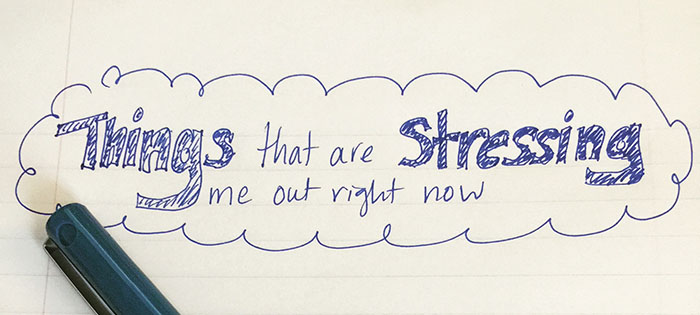 Things that are Stressing
me out right now